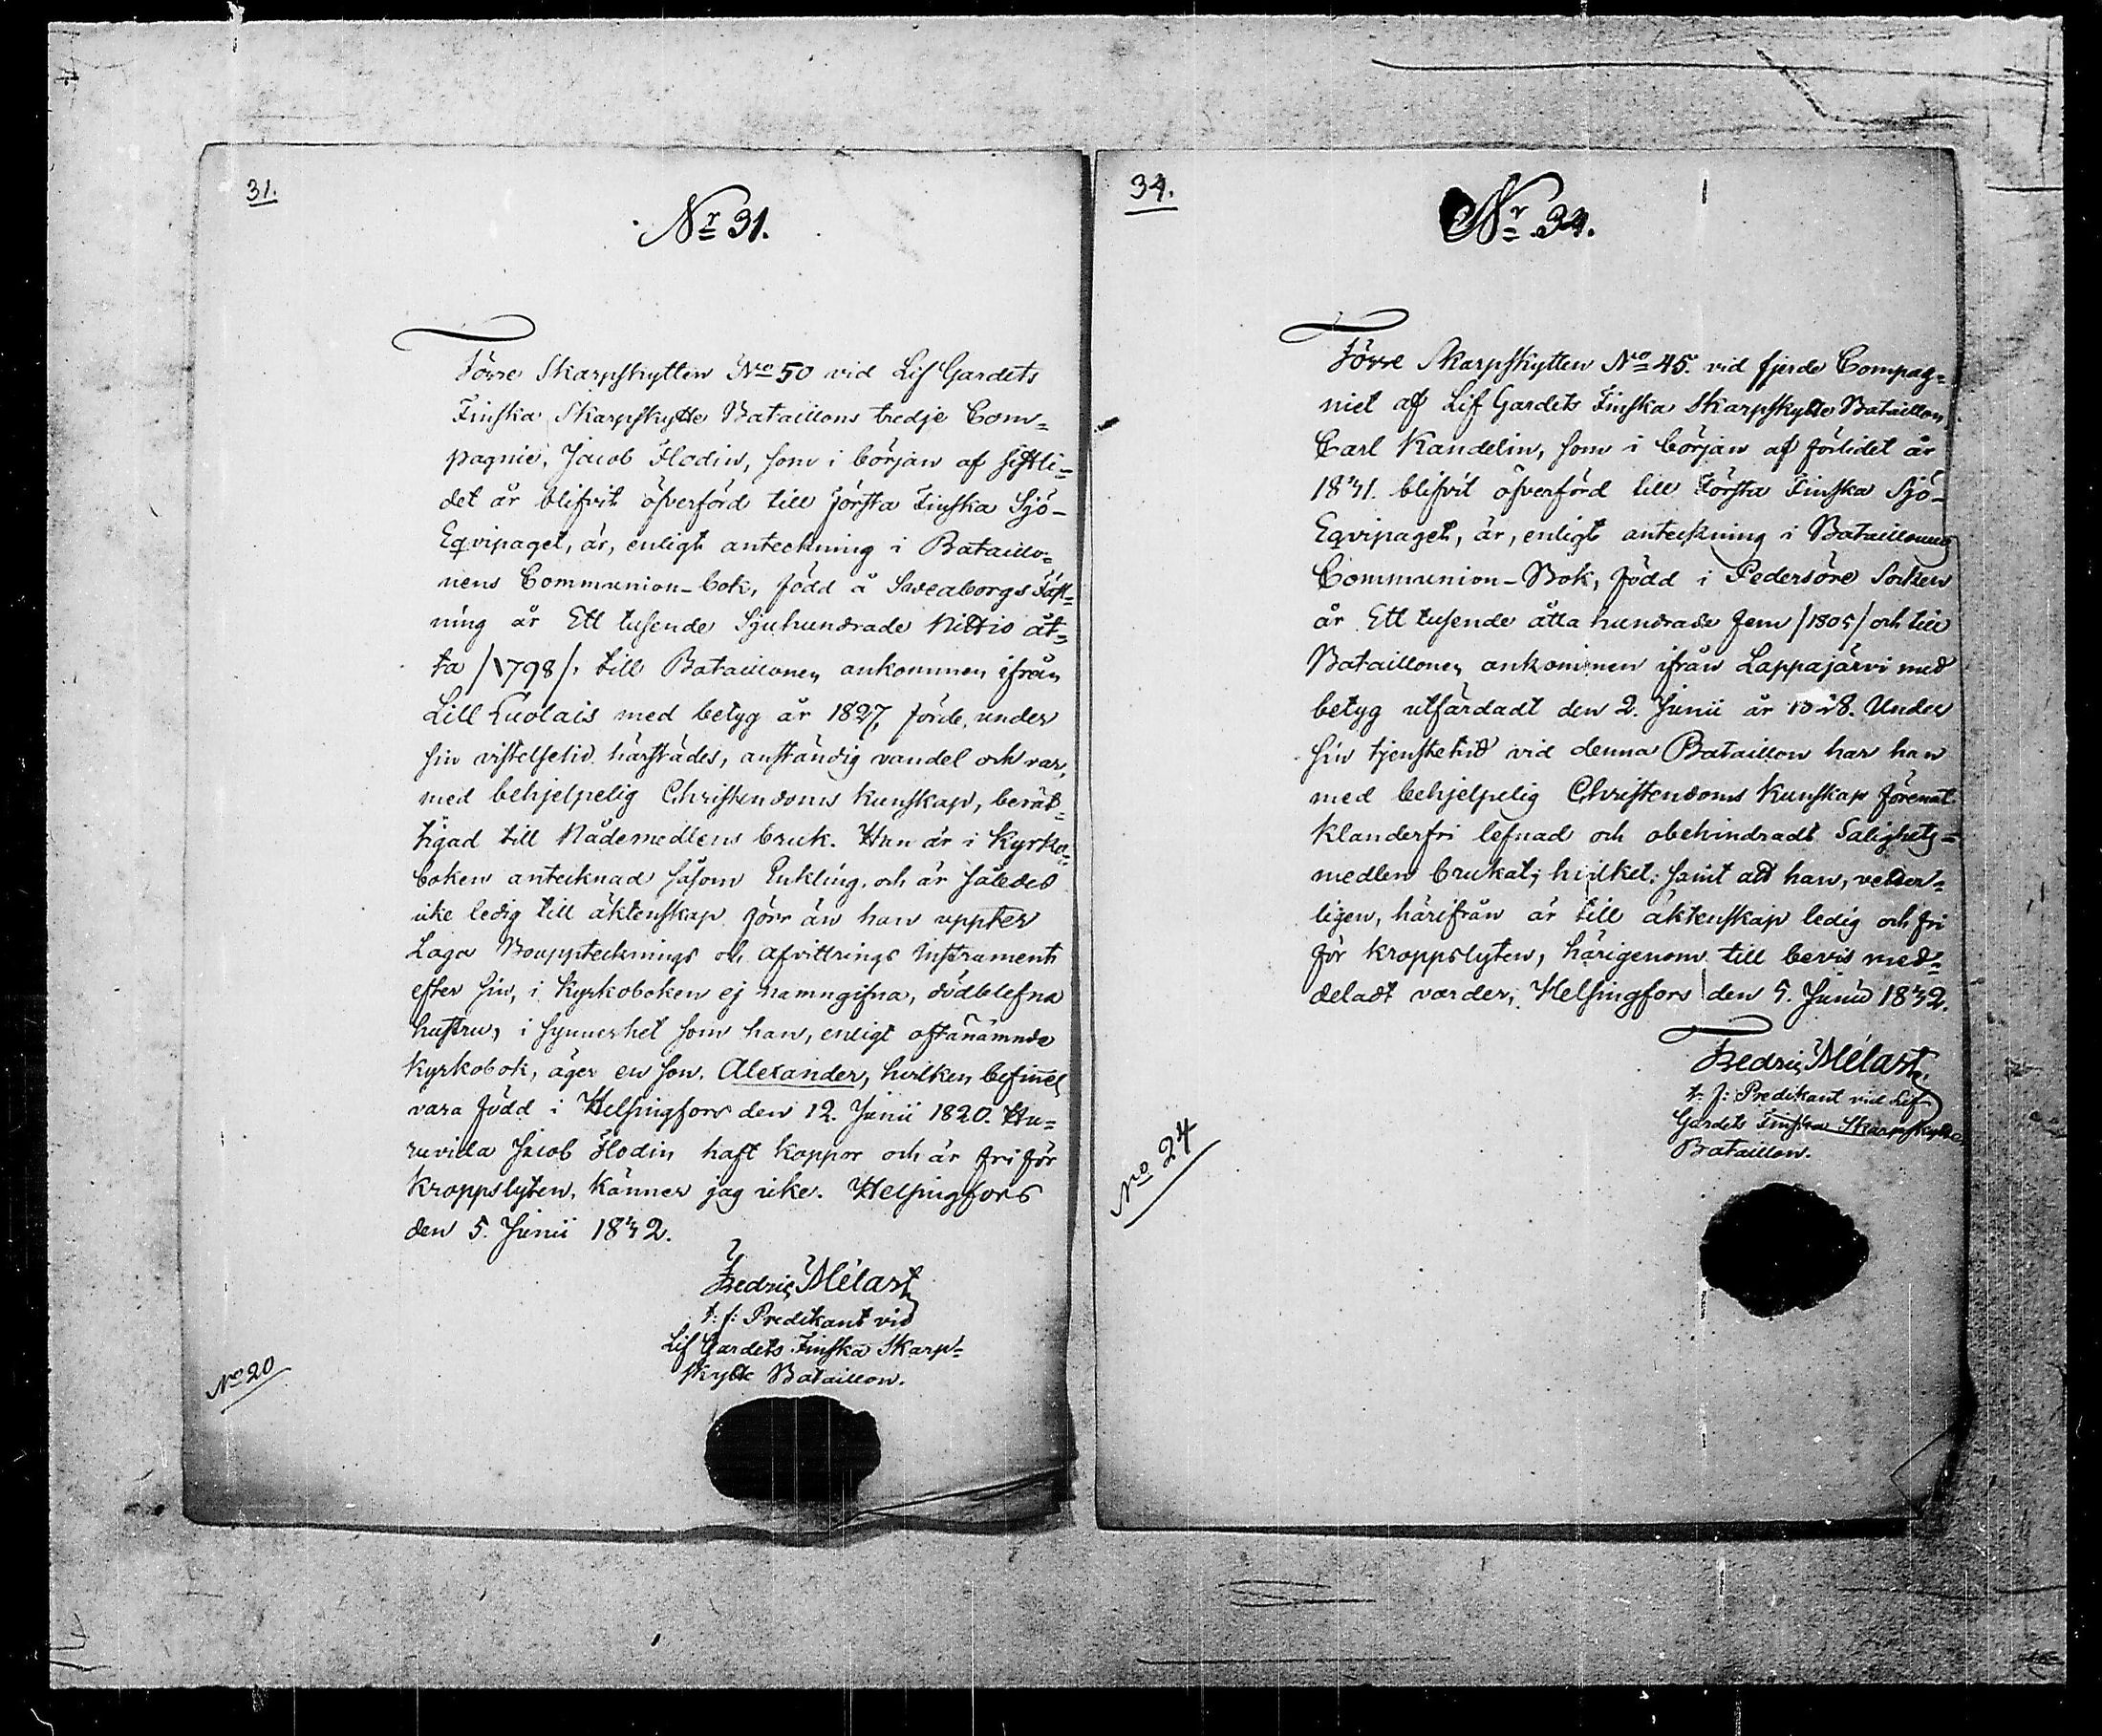 31.
Nr 31.
Förre Skarpskytten No 50 vid Lif Gardets
Finska Skarpskytte Bataillons tredje Com-
pagnie, Jacob Flodin, som i början af sistli-
det år blifvit öfverförd till Första Finska Sjö-
Eqvipaget, är, enligt anteckning i Bataillo-
nens Communion-bok, född å Sveaborgs Fäst-
ning år Ett tusende Sjuhundrade Nittio åt-
ta /1798/, till Bataillonen ankommen ifrån
Lill Luolais med betyg år 1827, förde, under
sin vistelsetid härstädes, anständig vandel och var,
med behjelpelig Christendoms kunskap, berät-
tigad till Nådemedlens bruk. Han är i Kyrko-
boken antecknad såsom Enkling, och är således
icke ledig till äktenskap förr än han uppter
Laga Boupptecknings och Afvittrings Instrument
efter sin, i Kyrkoboken ej namngifna, dödblefna
hustru, i synnerhet som han, enligt oftanämnde
Kyrkobok, äger en son, Alexander, hvilken befinnes
vara född i Helsingfors den 12. Junii 1820. Hu-
ruvida Jacob Flodin haft koppor och är fri för
kroppslyten, känner jag icke. Helsingfors
den 5. Junii 1832.
Fredric Mélart
t. f: Predikant vid
Lif Gardets Finska Skarp-
skytte Bataillon.
No 20
34.
Nr 34.
Förre Skarpskytten No 45. vid fjerde Compag-
niet af Lif Gardets Finska Skarpskytte Bataillon,
Carl Kandelin, som i början af förlidet år
1831. blifvit öfverförd till Första Finska Sjö-
Eqvipaget, är, enligt anteckning i Bataillonens
Communion-Bok, född i Pedersöre Socken
år Ett tusende åtta hundrade fem /1805/ och till
Bataillonen ankommen ifrån Lappajärvi med
betyg utfärdadt den 2. Junii år 1828. Under
sin tjenstetid vid denna Bataillon har han
med behjelpelig Christendoms kunskap förenat
klanderfri lefnad och obehindradt Salighets-
medlen brukat; hvilket, samt att han, veter-
ligen, härifrån är till äktenskap ledig och fri
för kroppslyten, härigenom till bevis med-
deladt varder, Helsingfors den 5. Junii 1832.
Fredric Mélart
t. f: Predikant vid Lif
Gardets Finska Skarpskytte
Bataillon.
No 24